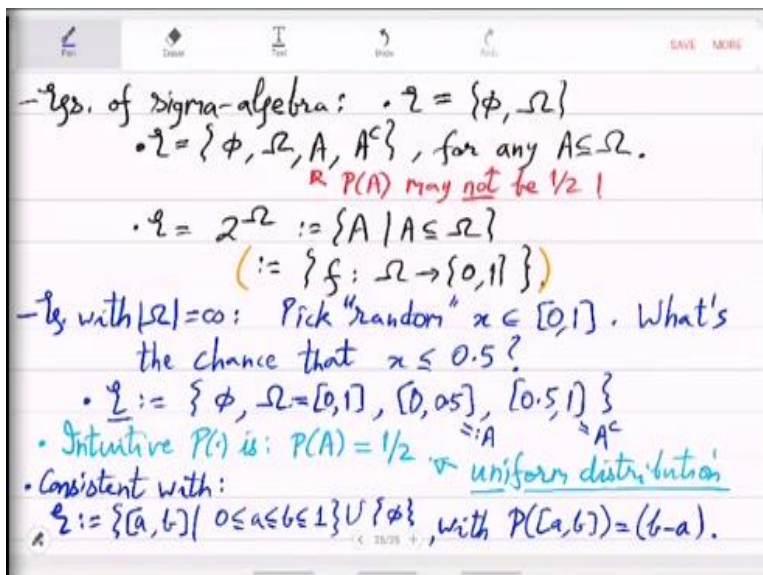 Pen Eraser Text Undo Redo SAVE MORE
-Egs. of sigma-algebra: • ℰ = {φ, Ω}
• ℰ = {φ, Ω, A, Aᶜ}, for any A⊆Ω.
P(A) may not be 1/2 !
• ℰ = 2^Ω := {A | A⊆Ω}
(:= {f: Ω→{0,1}})
-Eg. with |Ω|=∞: Pick "random" x ∈ [0,1]. What's
the chance that x ≤ 0.5?
• ℰ := {φ, Ω=[0,1], [0,0.5], [0.5,1]}
=:A =Aᶜ
• Intuitive P(·) is: P(A) = 1/2. uniform distribution
• Consistent with:
ℰ := {[a,b] | 0≤a≤b≤1} ∪ {φ}, with P([a,b]) = (b-a).
< 25/25 +